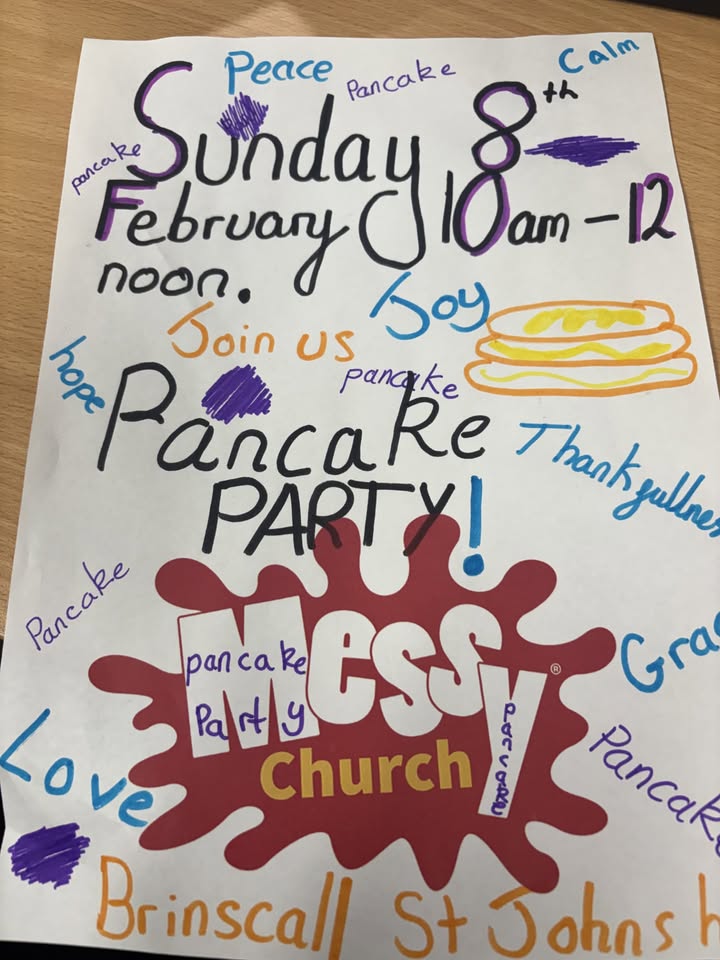 Peace
Pancake
Calm
pancake
Sunday 8th
February 10am - 12
noon.
Joy
Join us
hope
pancake
Pancake
Thankfullness
PARTY!
Pancake
Messy
pancake
Party
®
Church
Love
Pancake
Brinscall St Johns